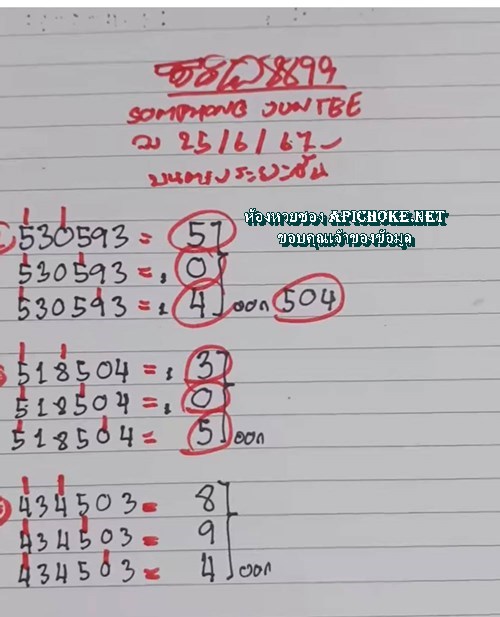 8899
SOMPHONG JUNTEE
25/6/67
บน
ห้องหวยซอง APICHOKE.NET
ขอบคุณเจ้าของข้อมูล
530593 = 5
530593 = 0
530593 = 4 ออก 504
518504 = 3
518504 = 0
518504 = 5 ออก
434503 = 8
434503 = 9
434503 = 4 ออก